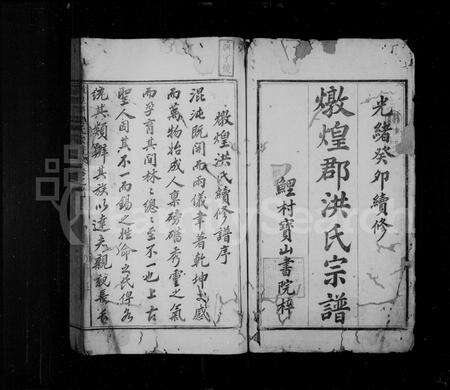 光緒癸卯續修
燉煌郡洪氏宗譜
鯉村寶山書院梓
燉煌洪氏續修譜序
混沌既開而兩儀肇著乾坤交感
而萬物始成人稟磅礴秀靈之氣
而孕育其間林〻總〻至不一也上古
聖人因其不一而錫之姓命之氏俾各
統其類辨其族以達夫親親長長